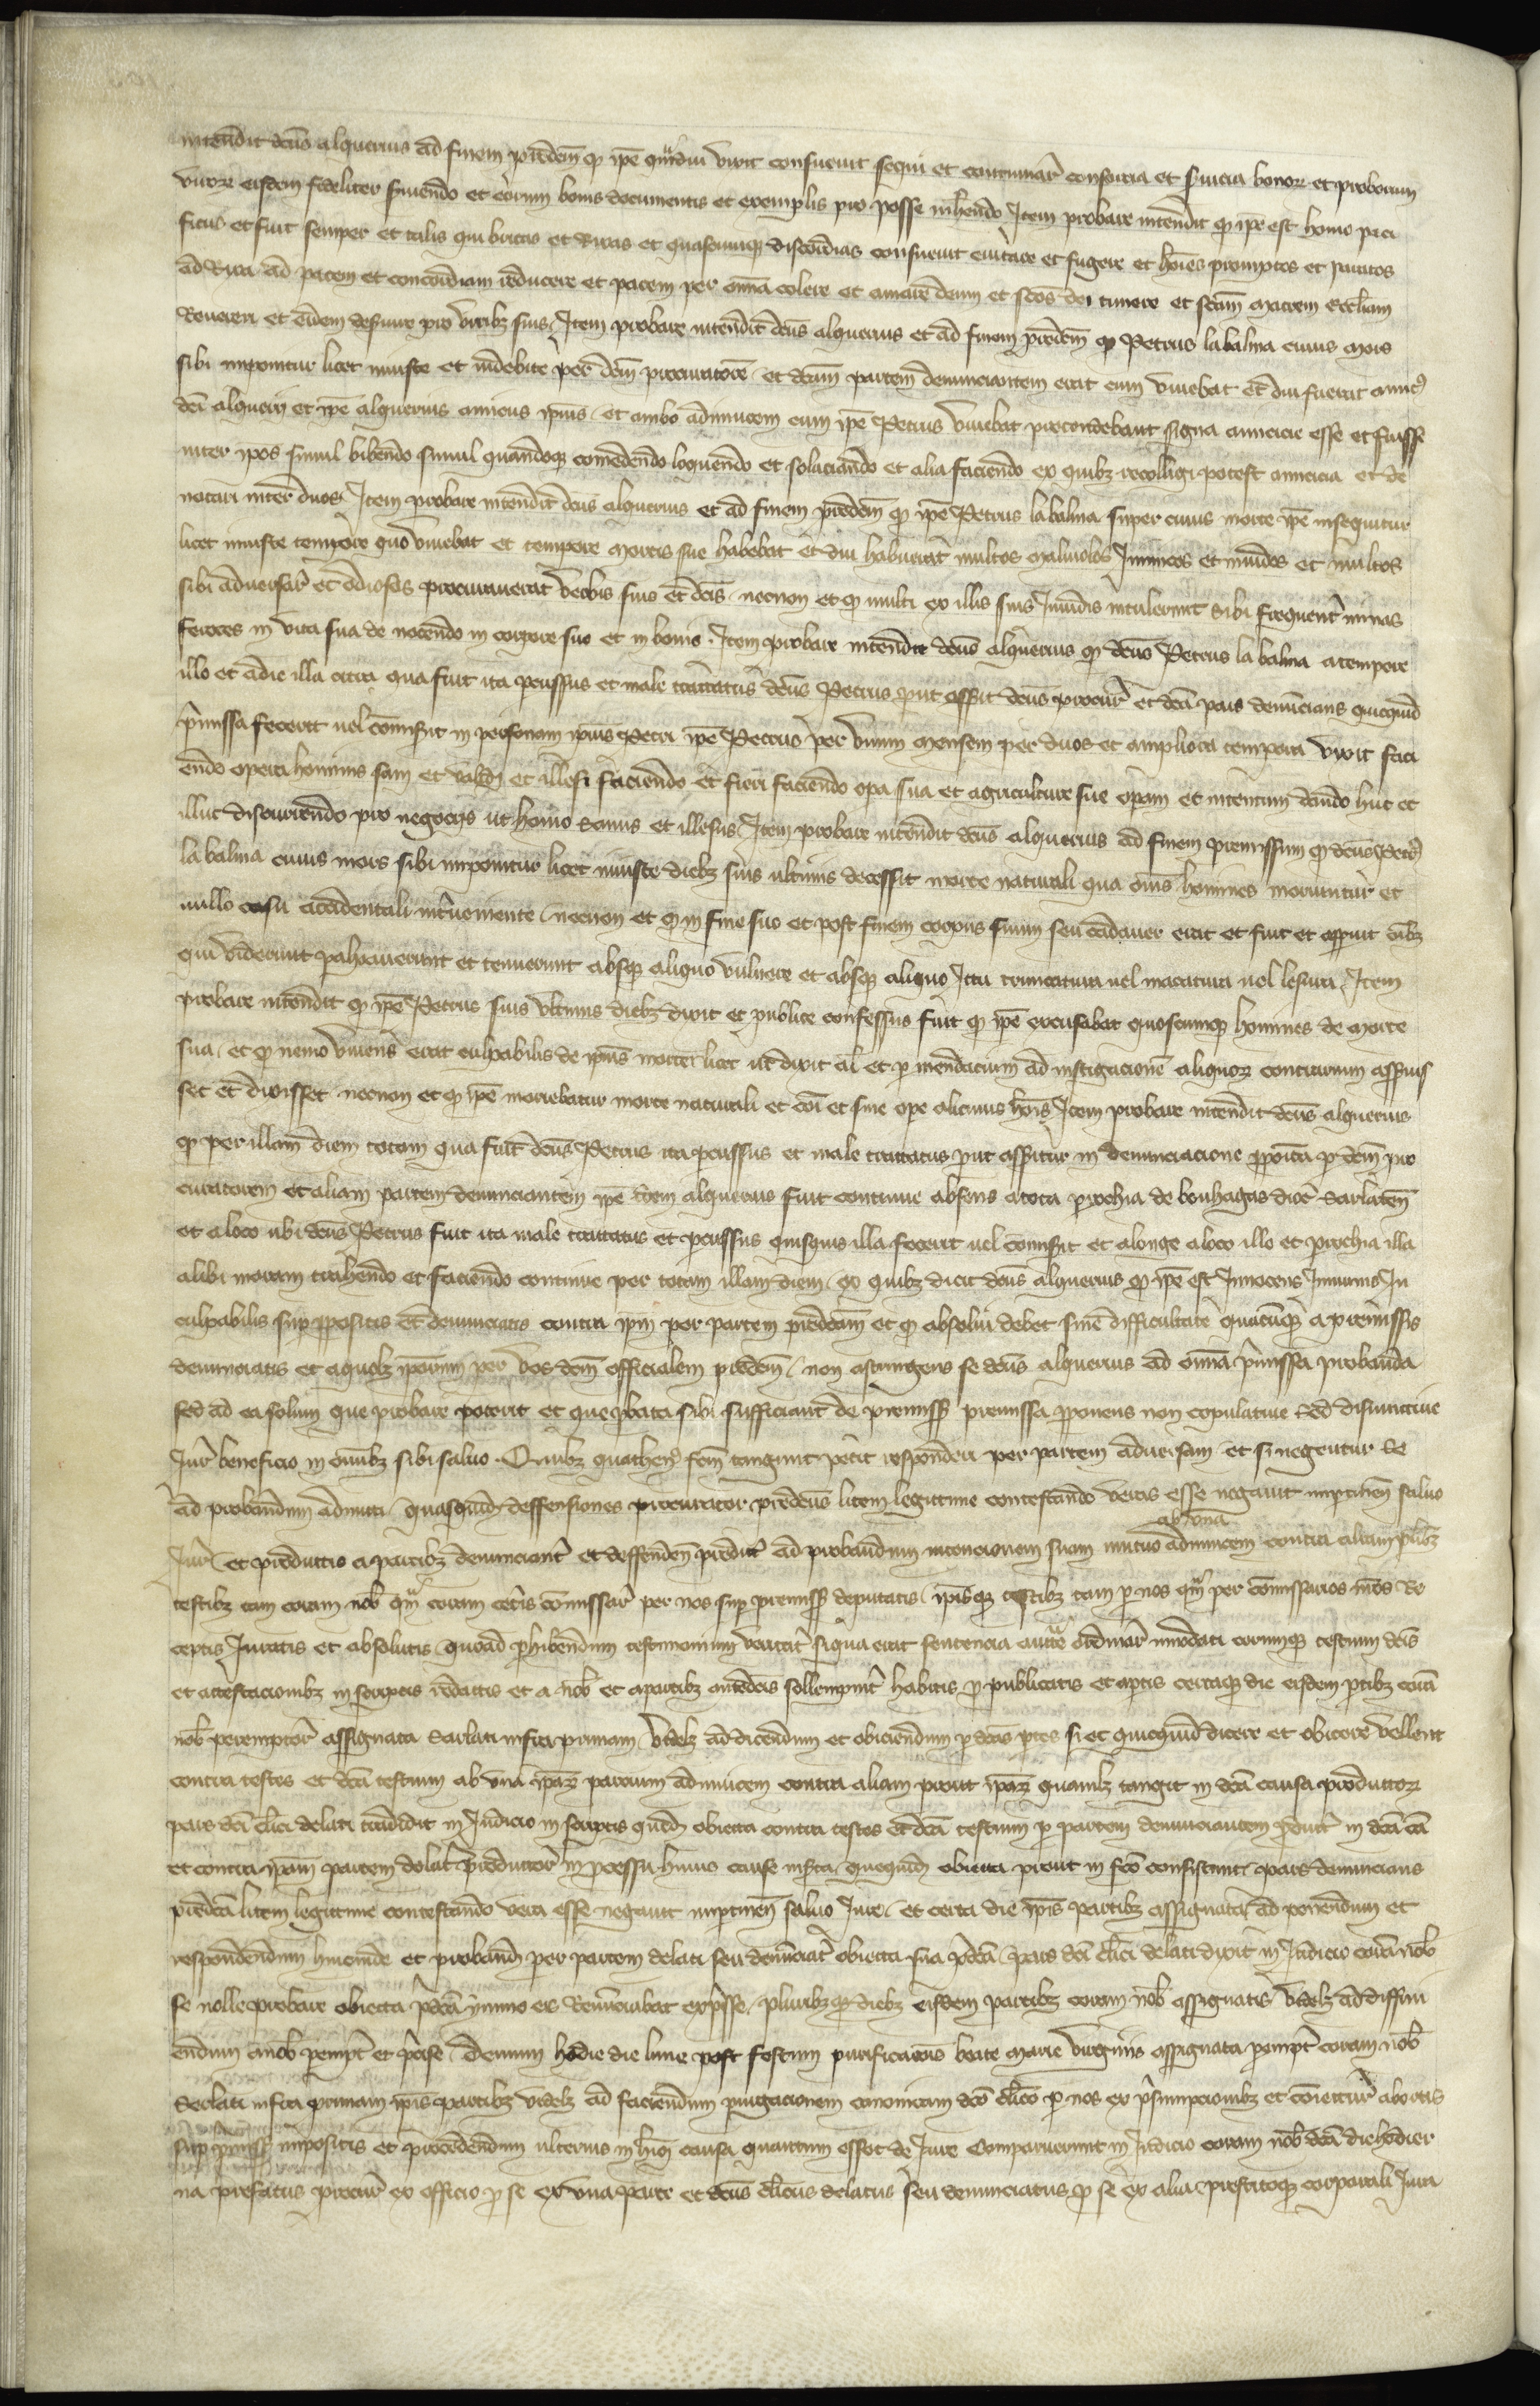 intendit dcus alquerius ad finem predcm q ipe qmdiu vixit consuevit sequi et continuar consorcia et svicia bonor et proborum
viror eisdem fideliter sviendo et eorum bonis documentis et exemplis pro posse inhendo Item probare intendit q ipe est homo paci
ficus et fuit semper et talis qui brigas et rixas et quascumq discordias consuevit evitare et fugere et hoies promptos et paratos
ad rixa ad pacem et concordiam reducere et pacem per omia colere et amare deum et scos dei timere et scam matrem eccliam
Revereri et eidem defvire pro viribz suis Item probare intendit dcus alquerius et ad finem predcm q Petrus la balma cuius mors
sibi imponitur licet iniuste et indebite per dcm procuratorem et dcam partem denunciantem erat cum vivebat et diu fuerat amic
dci alquerii et ipe alquerius amicus ipius et ambo adinvicem cum ipe Petrus vivebat pretendebant signa amicicie esse et fuisse
inter ipos simul bibendo simul quandoq comedendo loquendo et solaciando et alia faciendo ex quibz recolligi potest amicicia et de
notari inter duos Item probare intendit dcus alquerius et ad finem predcm q ipe Petrus la balma super cuius morte ipe insequitur
licet iniuste tempore quo vivebat et tempore mortis sue habebat et diu habuerat multos malivolos Inimicos et invidos et multos
sibi adversar et odiosos procuraverat verbis suis et dcis necnon et q multi ex illis suis Invidis intulerunt sibi frequent minas
feroces in vita sua de nocendo in corpore suo et in bonis Item probare intendit dcus alquerius q dcus Petrus la balma a tempore
illo et a die illa citra qua fuit ita pcussus et male tractatus dcus Petrus put assit dcus procur et dca pars denuncians quicquid
pmissa fecerit uel comisit in personam ipius Petri ipe Petrus per unum mensem per duos et ampliora tempora vixit faci
endo opera hominis sani et validi et illesi faciendo et fieri faciendo opa sua et agriculture sue opam et intentum dando huc et
illuc discurriendo pro negociis ut homo sanus et illesus Item probare intendit dcus alquerius ad finem premissum q dcus Petr
la balma cuius mors sibi imponitur licet iniuste diebz suis ultimis decessit morte naturali qua omis homines moriuntur et
nullo casu accidentali intveniente necnon et q in fine suo et post finem corpus suum seu cadaver erat et fuit et appuit oibz
qui viderunt palpaverunt et tenuerunt absq aliquo vulnere et absq aliquo Ictu truncatura uel macatura uel lesura Item
probare intendit q ipe Petrus suis ultimis diebz dixit et publice confessus fuit q ipe excusabat quoscumq homines de morte
sua et q nemo vivens erat culpabilis de ipius morte licet ut dixit al et p mendacium ad instigacione aliquor contrarium asseruis
set et dixisset necnon et q ipe moriebatur morte naturali et coi et sine ope alicuius hois Item probare intendit dcus alquerius
q per illam diem totam qua fuit dcus Petrus ita pcussus et male tractatus put assitur in denunciacione pposita p dcm pro
curatorem et aliam partem denunciantem ipe idem alquerius fuit continue absens a tota prochia de bouhagas dioc Sarlaten
et a loco ubi dcus Petrus fuit ita male tractatus et pcussus quisquis illa fecerit uel comisit et a longe a loco illo et prochia illa
alibi moram trahendo et faciendo continue per totam illam diem ex quibz dicit dcus alquerius q ipe est Innocens Inmunis In
culpabilis sup ppositis et denunciatis contra ipm per partem predcam et q absolvi debet sine difficultate quacumq a premissis
denunciatis et a quolz iporum per vos dcm officialem predcm non astringens se dcus alquerius ad omia pmissa probanda
sed ad ea solum que probare poterit et que pbata sibi sufficiant de premiss premissa pponens non copulative sed disiunctive
Jur beneficio in omibz sibi salvo Quibz quathen fcm tangunt petit responderi per partem adversam et si negentur se
ad probandum admitti quasquid deffensiones procurator predcus litem legittime contestando veras esse negavit imptinen salvo
Jur et productis a partibz denunciant et deffenden predict ad probandum intencionem suam mutuo adinvicem ab una contra aliam plibz
testibz tam coram nob qm coram certis comissar per nos sup premiss deputatis ipisq testibz tam p nos qm per comissarios nros re
ceptis Juratis et absolutis quoad phibendum testimonium veritat siqua erat sentencia aucte ordinar innodati eorumq testium dcis
et attestacionibz in scriptis redactis et a nob et a partibz antedcis sollempnit habitis p publicatis et aptis certaq die eisdem ptibz cora
nob peremptor assignata Sarlati infra primam videlz ad dicendum et obiciendum p dcas ptes si et quicquid dicere et obicere vellent
contra testes et dca testium ab una ipar partium adinvicem contra aliam prout ipar quamlz tangit in dca causa productor
pars dci clici delati tradidit in Judicio in scriptis qued obiecta contra testes et dca testium p partem denunciantem pduct in dca ca
et contra ipam partem delat productor in pcessu huius cause insta quequid obiecta prout in fco consistunt pars denuncians
predca litem legittime contestando vera esse negavit imptinen salvo Jure et certa die ipis partibz assignata ad ponendum et
respondendum hincinde et proband per partem delati seu denunciat obiecta sua pdca pars dci clici delati dixit in Judicio cora nob
se nolle probare obiecta pdca ymmo eis Renunciabat expsse pluribz q diebz eisdem partibz coram nob assignatis videlz ad diffini
endum a nob pempt et pcise Demum hodie die lune post festum purificacois beate marie virginis assignata pempt coram nob
Sarlati infra primam ipis partibz videlz ad faciendum purgacionem canonicam dco clico p nos ex psumpcionibz et coniectur abortis
sup pmiss impositis et procedendum ulterius in hui causa quantum esset de Jure Comparuerunt in Judicio coram nob dca die hodier
na prefatus procur ex officio p se ex una parte et dcus clicus delatus seu denunciatus p se ex alia prestitoq corporali Jura